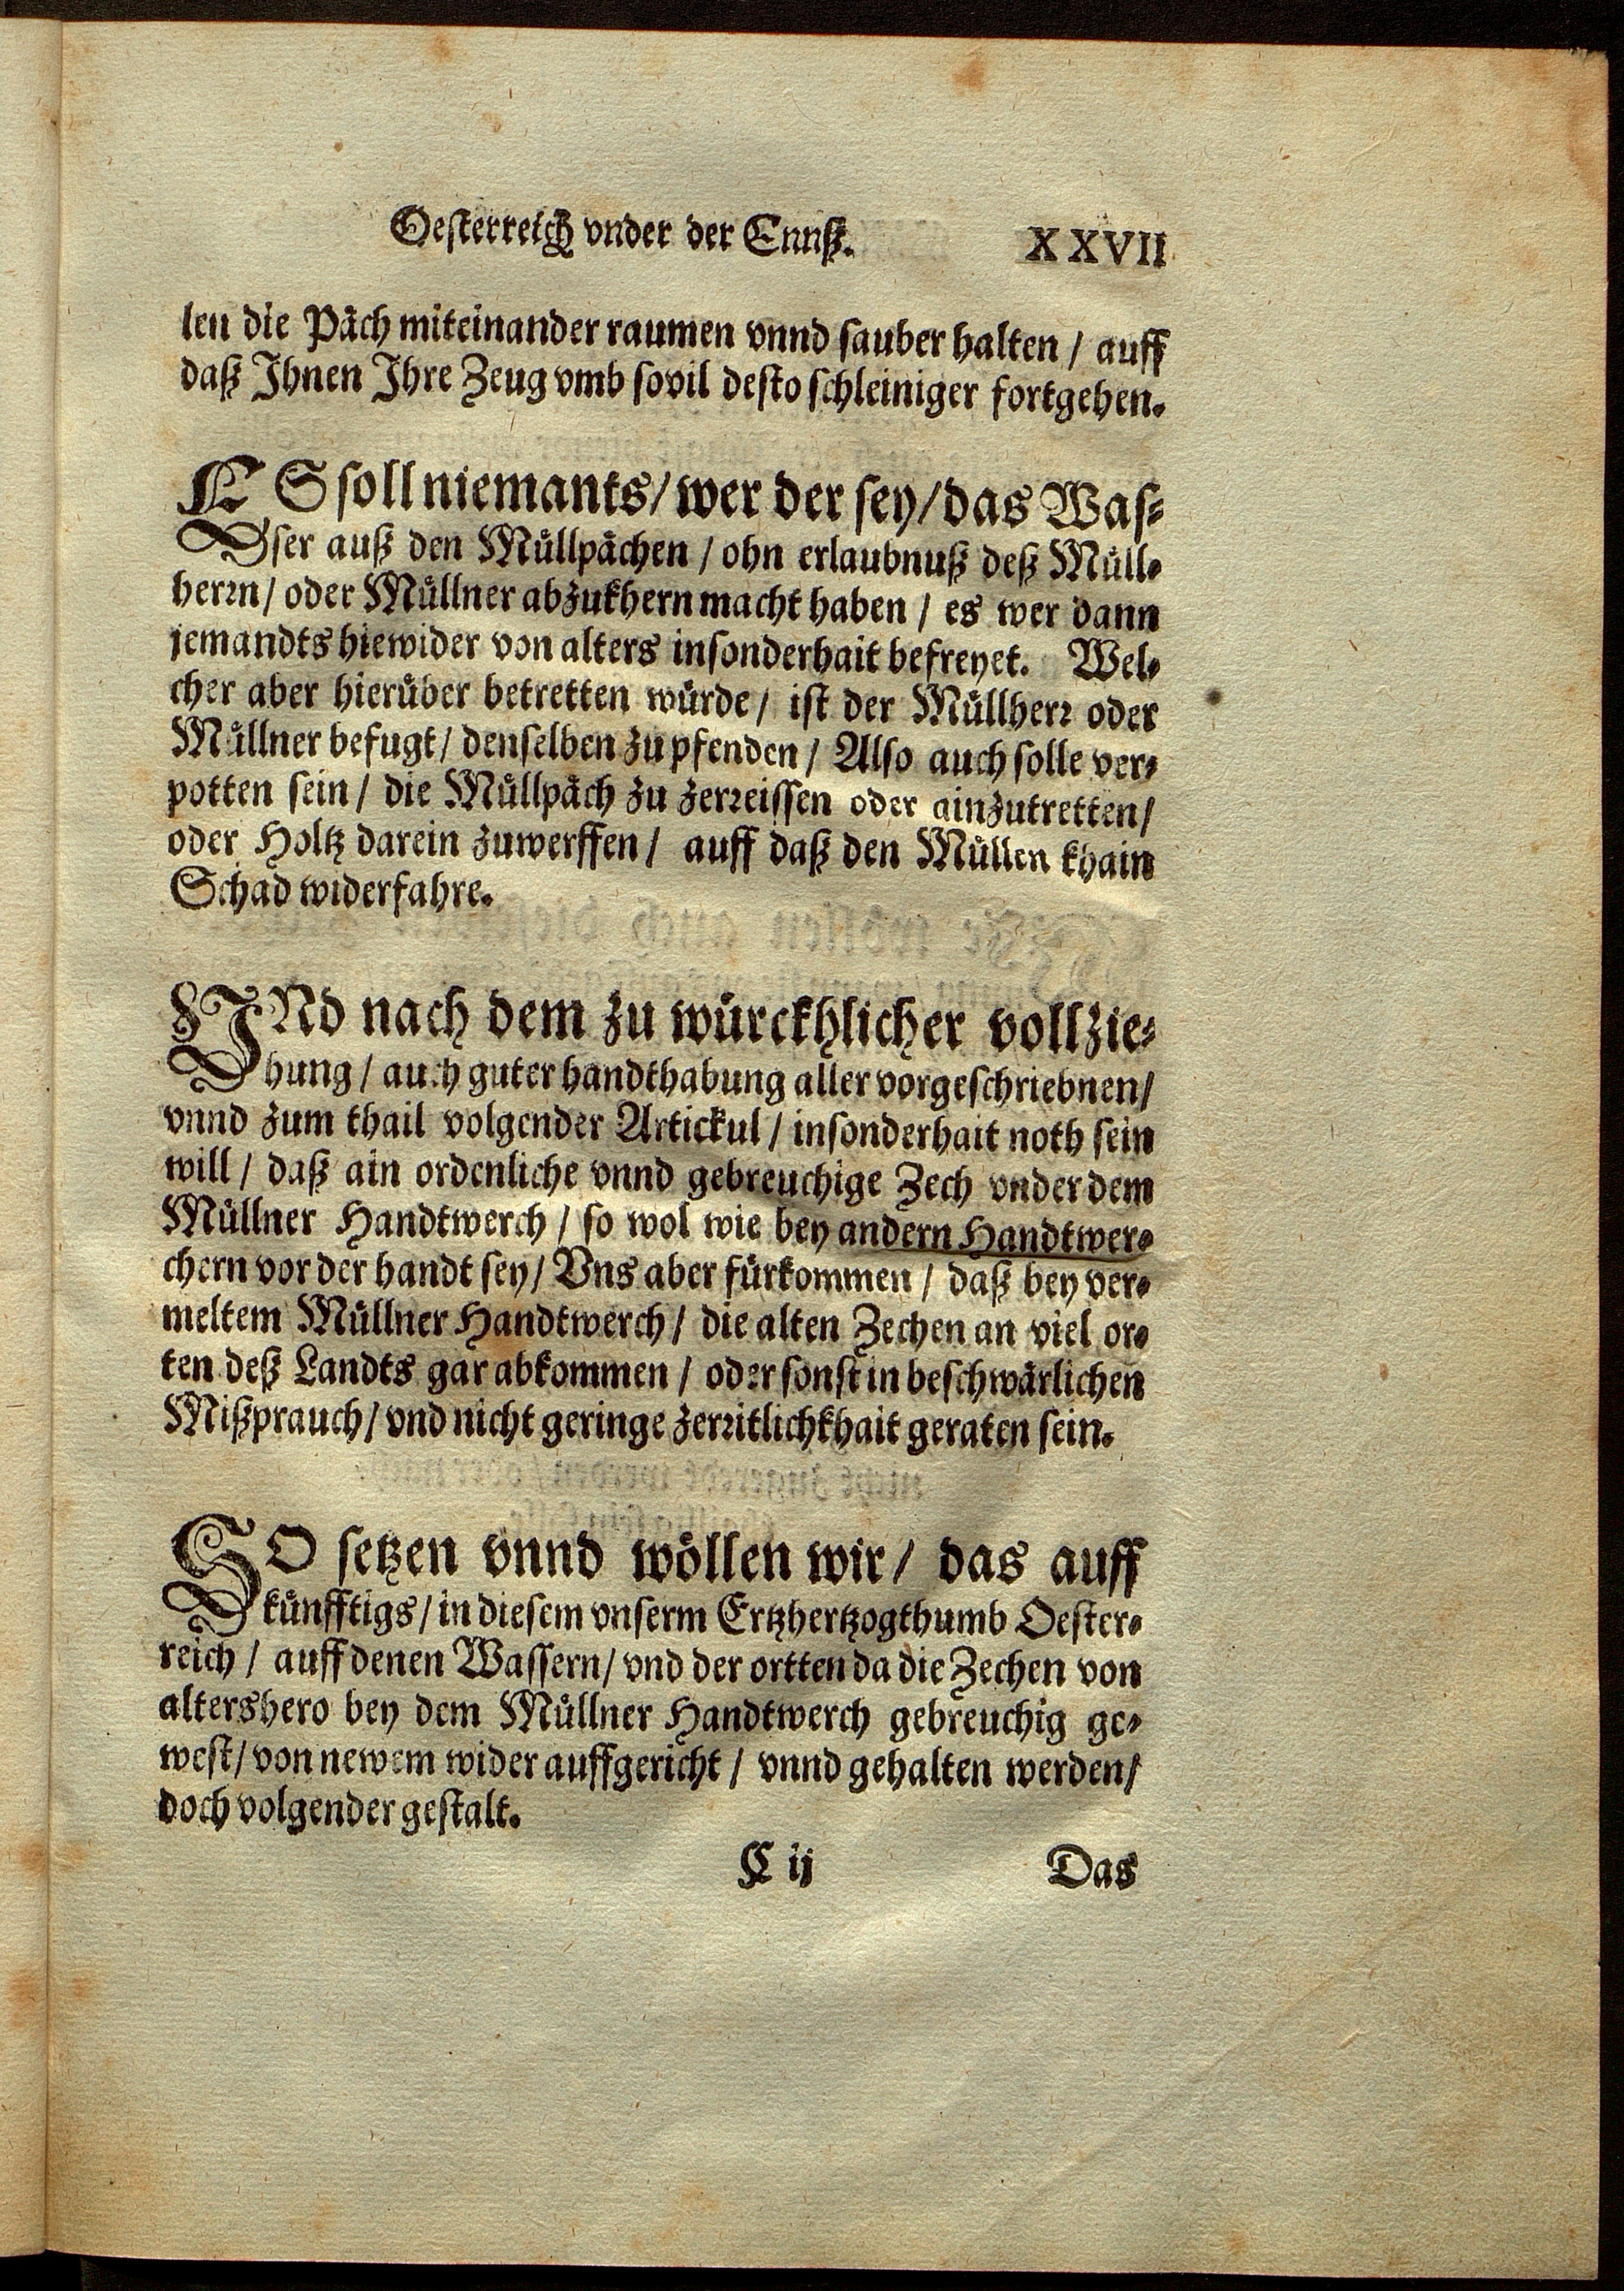 Oesterreich vnder der Ennß. XXVII
len die Päch miteinander raumen vnnd sauber halten / auff
daß Ihnen Ihre Zeug vmb sovil desto schleiniger fortgehen.
ES soll niemants / wer der sey / das Was⸗
ser auß den Müllpächen / ohn erlaubnuß deß Müll⸗
herrn / oder Müllner abzukhern macht haben / es wer dann
jemandts hiewider von alters insonderhait befreyet. Wel⸗
cher aber hierüber betretten würde / ist der Müllherr oder
Müllner befugt / denselben zu pfenden / Also auch solle ver⸗
potten sein / die Müllpäch zu zerreissen oder ainzutretten /
oder Holtz darein zuwerffen / auff daß den Müllen khain
Schad widerfahre.
VNd nach dem zu würckhlicher vollzie⸗
hung / auch guter handthabung aller vorgeschriebnen /
vnnd zum thail volgender Artickul / insonderhait noth sein
will / daß ain ordenliche vnnd gebreuchige Zech vnder dem
Müllner Handtwerch / so wol wie bey andern Handtwer⸗
chern vor der handt sey / Vns aber fürkommen / daß bey ver⸗
meltem Müllner Handtwerch / die alten Zechen an viel or⸗
ten deß Landts gar abkommen / oder sonst in beschwärlichen
Mißprauch / vnd nicht geringe zerritlichkhait geraten sein.
SO setzen vnnd wöllen wir / das auff
künfftigs / in diesem vnserm Ertzhertzogthumb Oester⸗
reich / auff denen Wassern / vnd der ortten da die Zechen von
altershero bey dem Müllner Handtwerch gebreuchig ge⸗
west / von newem wider auffgericht / vnnd gehalten werden /
doch volgender gestalt.
C ij Das